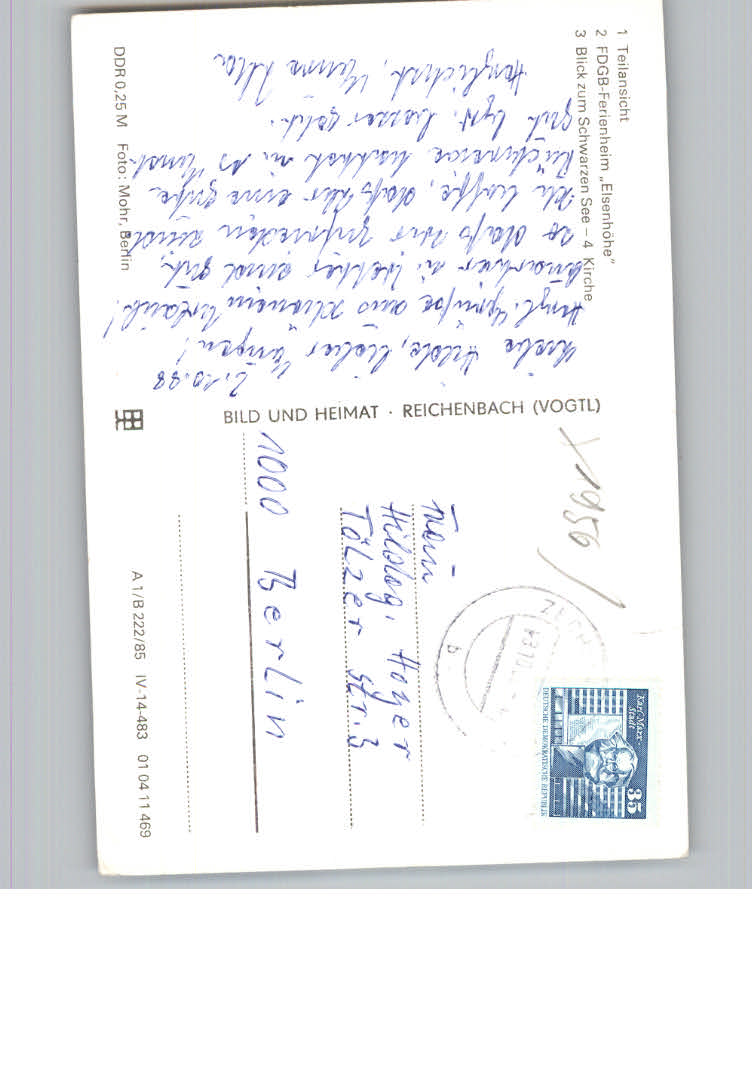 1 Teilansicht
2 FDGB-Ferienheim „Elsenhöhe"
3 Blick zum Schwarzen See – 4 Kirche
2.10.88
Liebe Hilde, lieber Jürgen!
Herzl. Grüße aus schönem Urlaub!
u. Wetter sind gut,
so daß wir zufrieden sind.
Ich hoffe, daß Ihr eine gute
Rückreise hattet u. es
geht.
Herzlichst,
DDR 0,25 M Foto: Mohr, Berlin
BILD UND HEIMAT · REICHENBACH (VOGTL)
A 1/B 222/85 IV-14-483 01 04 11 469
1956
Frau
Hildeg. Hoyer
Tölzer Str. 3
1000 Berlin
Karl-Marx-
Stadt
35
DEUTSCHE DEMOKRATISCHE REPUBLIK